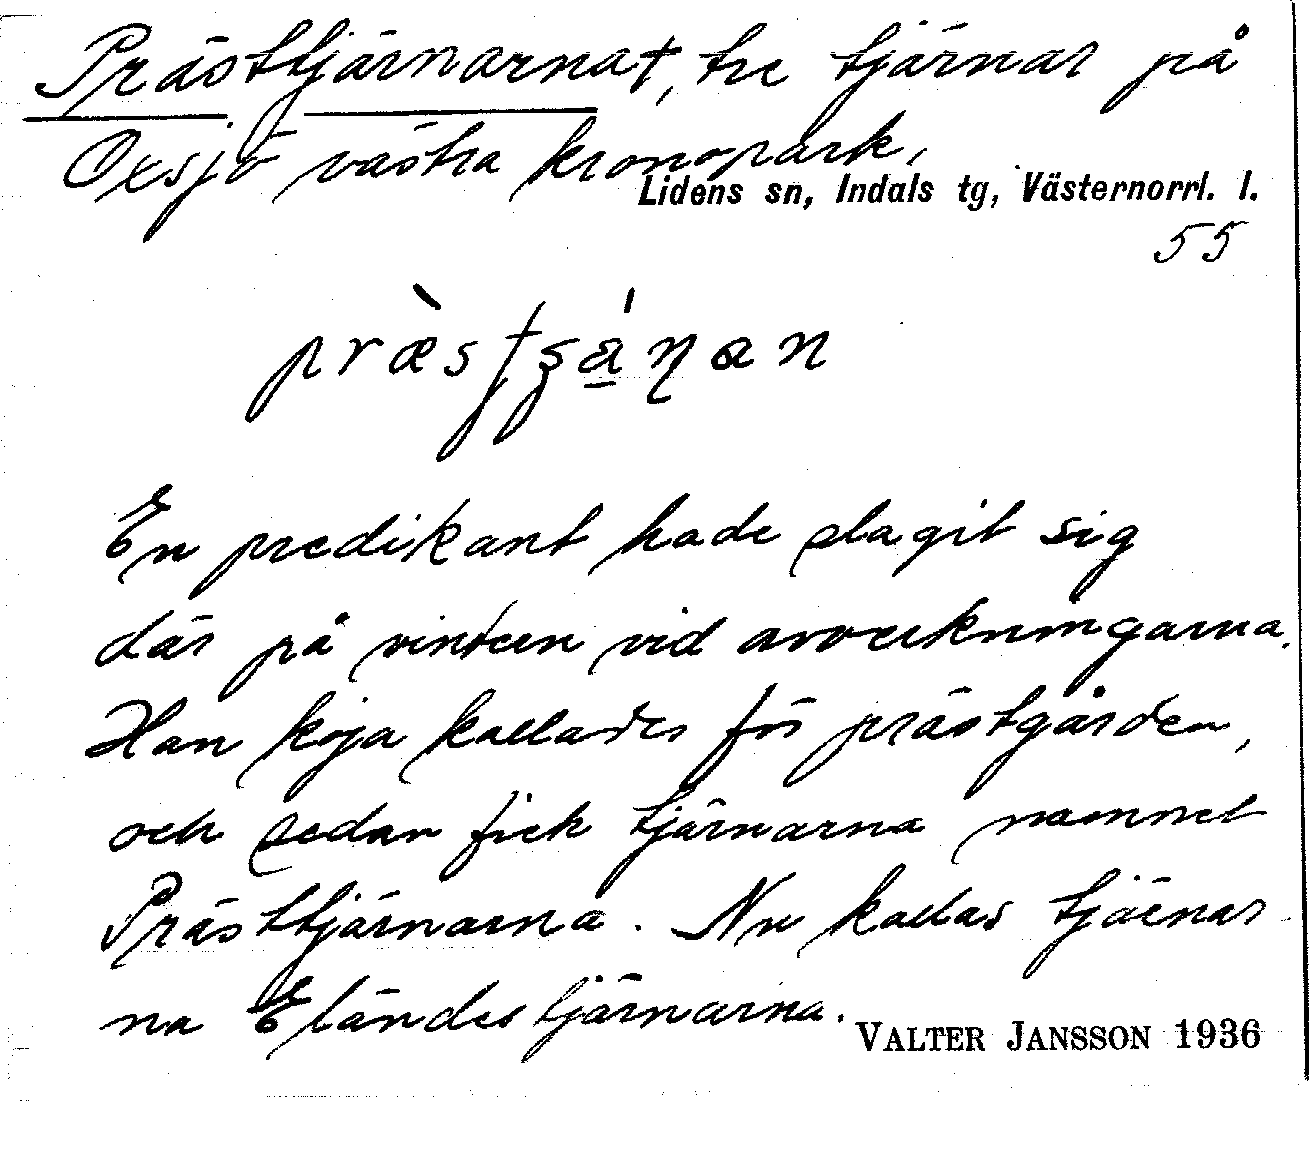 Prästtjärnarna†, tre tjärnar på
Oxsjö västra kronopark,
Lidens sn, Indals tg, Västernorrl. l.
55
En predikant hade slagit sig
där på vintern vid avverkningarna.
Han koja kallades för prästgården,
och sedan fick tjärnarna namnet
Prästtjärnarna. Nu kallas tjärnar
na Eländestjärnarna.
VALTER JANSSON 1936